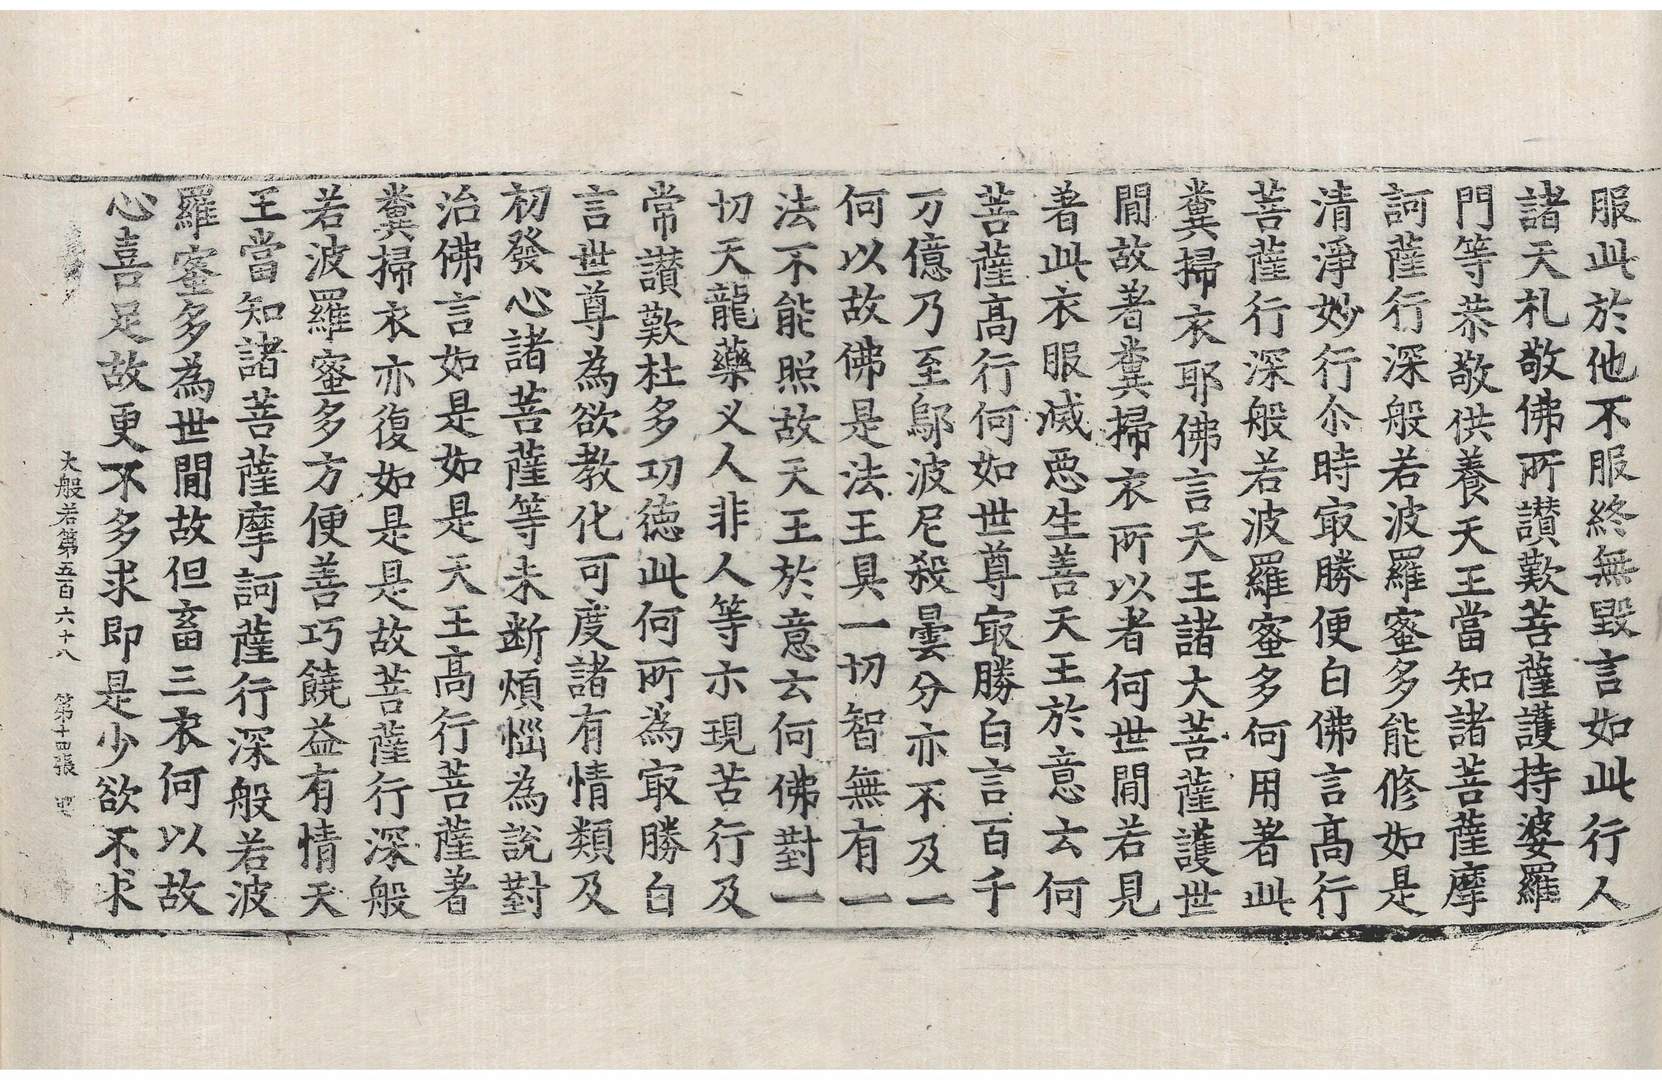 服此於他不服終無毀言如此行人
諸天礼敬佛所讃歎菩薩護持婆羅
門等恭敬供養天王當知諸菩薩摩
訶薩行深般若波羅蜜多能修如是
清淨妙行尒時㝡勝便白佛言高行
菩薩行深般若波羅蜜多何用著此
糞掃衣耶佛言天王諸大菩薩護世
閒故著糞掃衣所以者何世閒若見
著此衣服滅惡生善天王於意云何
菩薩高行何如世尊㝡勝白言百千
万億乃至鄔波尼殺曇分亦不及一
何以故佛是法王具一切智無有一
法不能照故天王於意云何佛對一
切天龍藥义人非人等示現苦行及
常讃歎杜多功德此何所為㝡勝白
言世尊為欲教化可度諸有情類及
初發心諸菩薩等未断煩惱為說對
治佛言如是如是天王高行菩薩著
糞掃衣亦復如是是故菩薩行深般
若波羅蜜多方便善巧饒益有情天
王當知諸菩薩摩訶薩行深般若波
羅蜜多為世閒故但畜三衣何以故
心喜足故更不多求即是少欲不求
大般若第五百六十八 第十四張